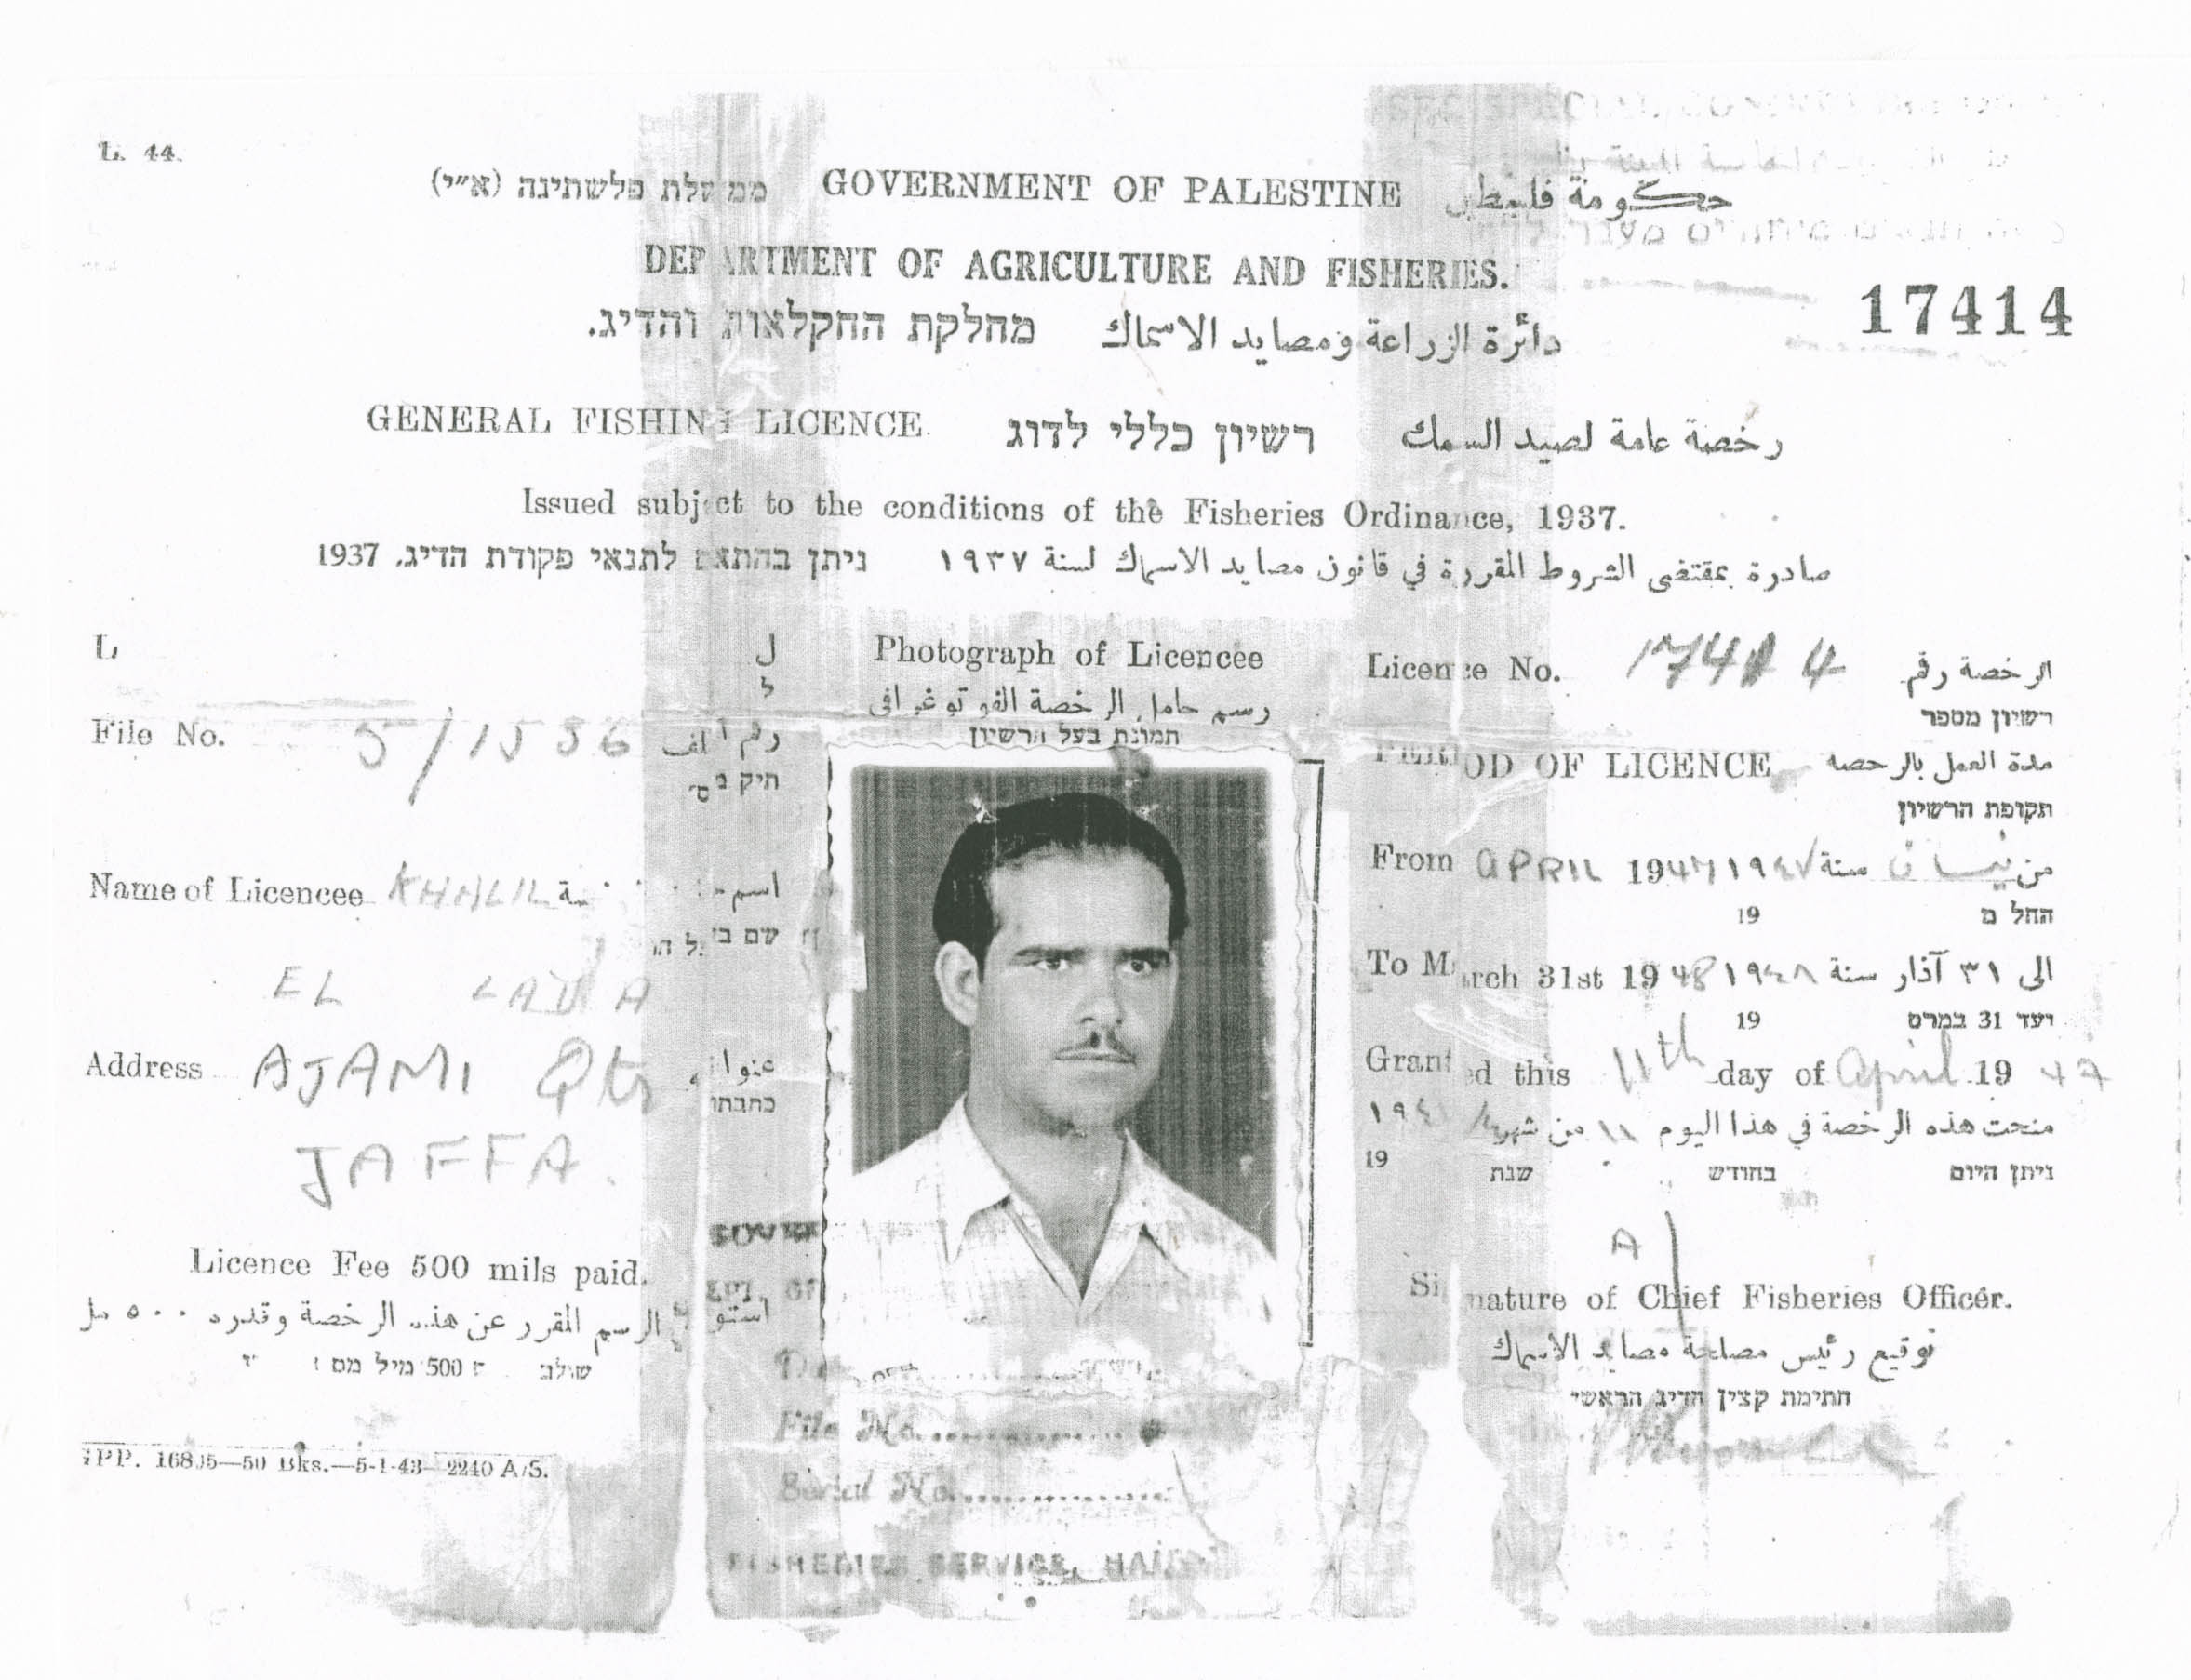 L. 44.
ממשלת פלשתינה (א״י) GOVERNMENT OF PALESTINE حكومة فلسطين
DEPARTMENT OF AGRICULTURE AND FISHERIES.
17414
מחלקת החקלאות והדיג. دائرة الزراعة ومصايد الاسماك
GENERAL FISHING LICENCE. רשיון כללי לדוג رخصة عامة لصيد السمك
Issued subject to the conditions of the Fisheries Ordinance, 1937.
ניתן בהתאם לתנאי פקודת הדיג, 1937 صادرة بمقتضى الشروط المقررة في قانون مصايد الاسماك لسنة ١٩٣٧
L ل
ל
File No. 5/1536 رقم الملف
תיק מס׳
Name of Licencee KHALIL
EL
Address AJAMI Qtr عنوانه
כתבתו
JAFFA.
Licence Fee 500 mils paid.
استوفي الرسم المقرر عن هذه الرخصة وقدره ٥٠٠ مل
500 מיל
50 Bks.—5-1-43—2240 A/S.
Photograph of Licencee
رسم حامل الرخصة الفوتوغرافي
תמונת בעל הרשיון
File No.
Serial No.
FISHERIES SERVICE, HAIFA
Licence No. 17414 الرخصة رقم
רשיון מספר
PERIOD OF LICENCE مدة العمل بالرخصة
תקופת הרשיון
From APRIL 1947 من نيسان سنة ١٩٤٧
החל מ 19
To March 31st 1948 الى ٣١ آذار سنة ١٩٤٨
ועד 31 במרס 19
Granted this 11th day of April 1947
منحت هذه الرخصة في هذا اليوم ١١ من شهر
ניתן היום בחודש שנת 19
Signature of Chief Fisheries Officer.
توقيع رئيس مصلحة مصايد الاسماك
חתימת קצין הדיג הראשי